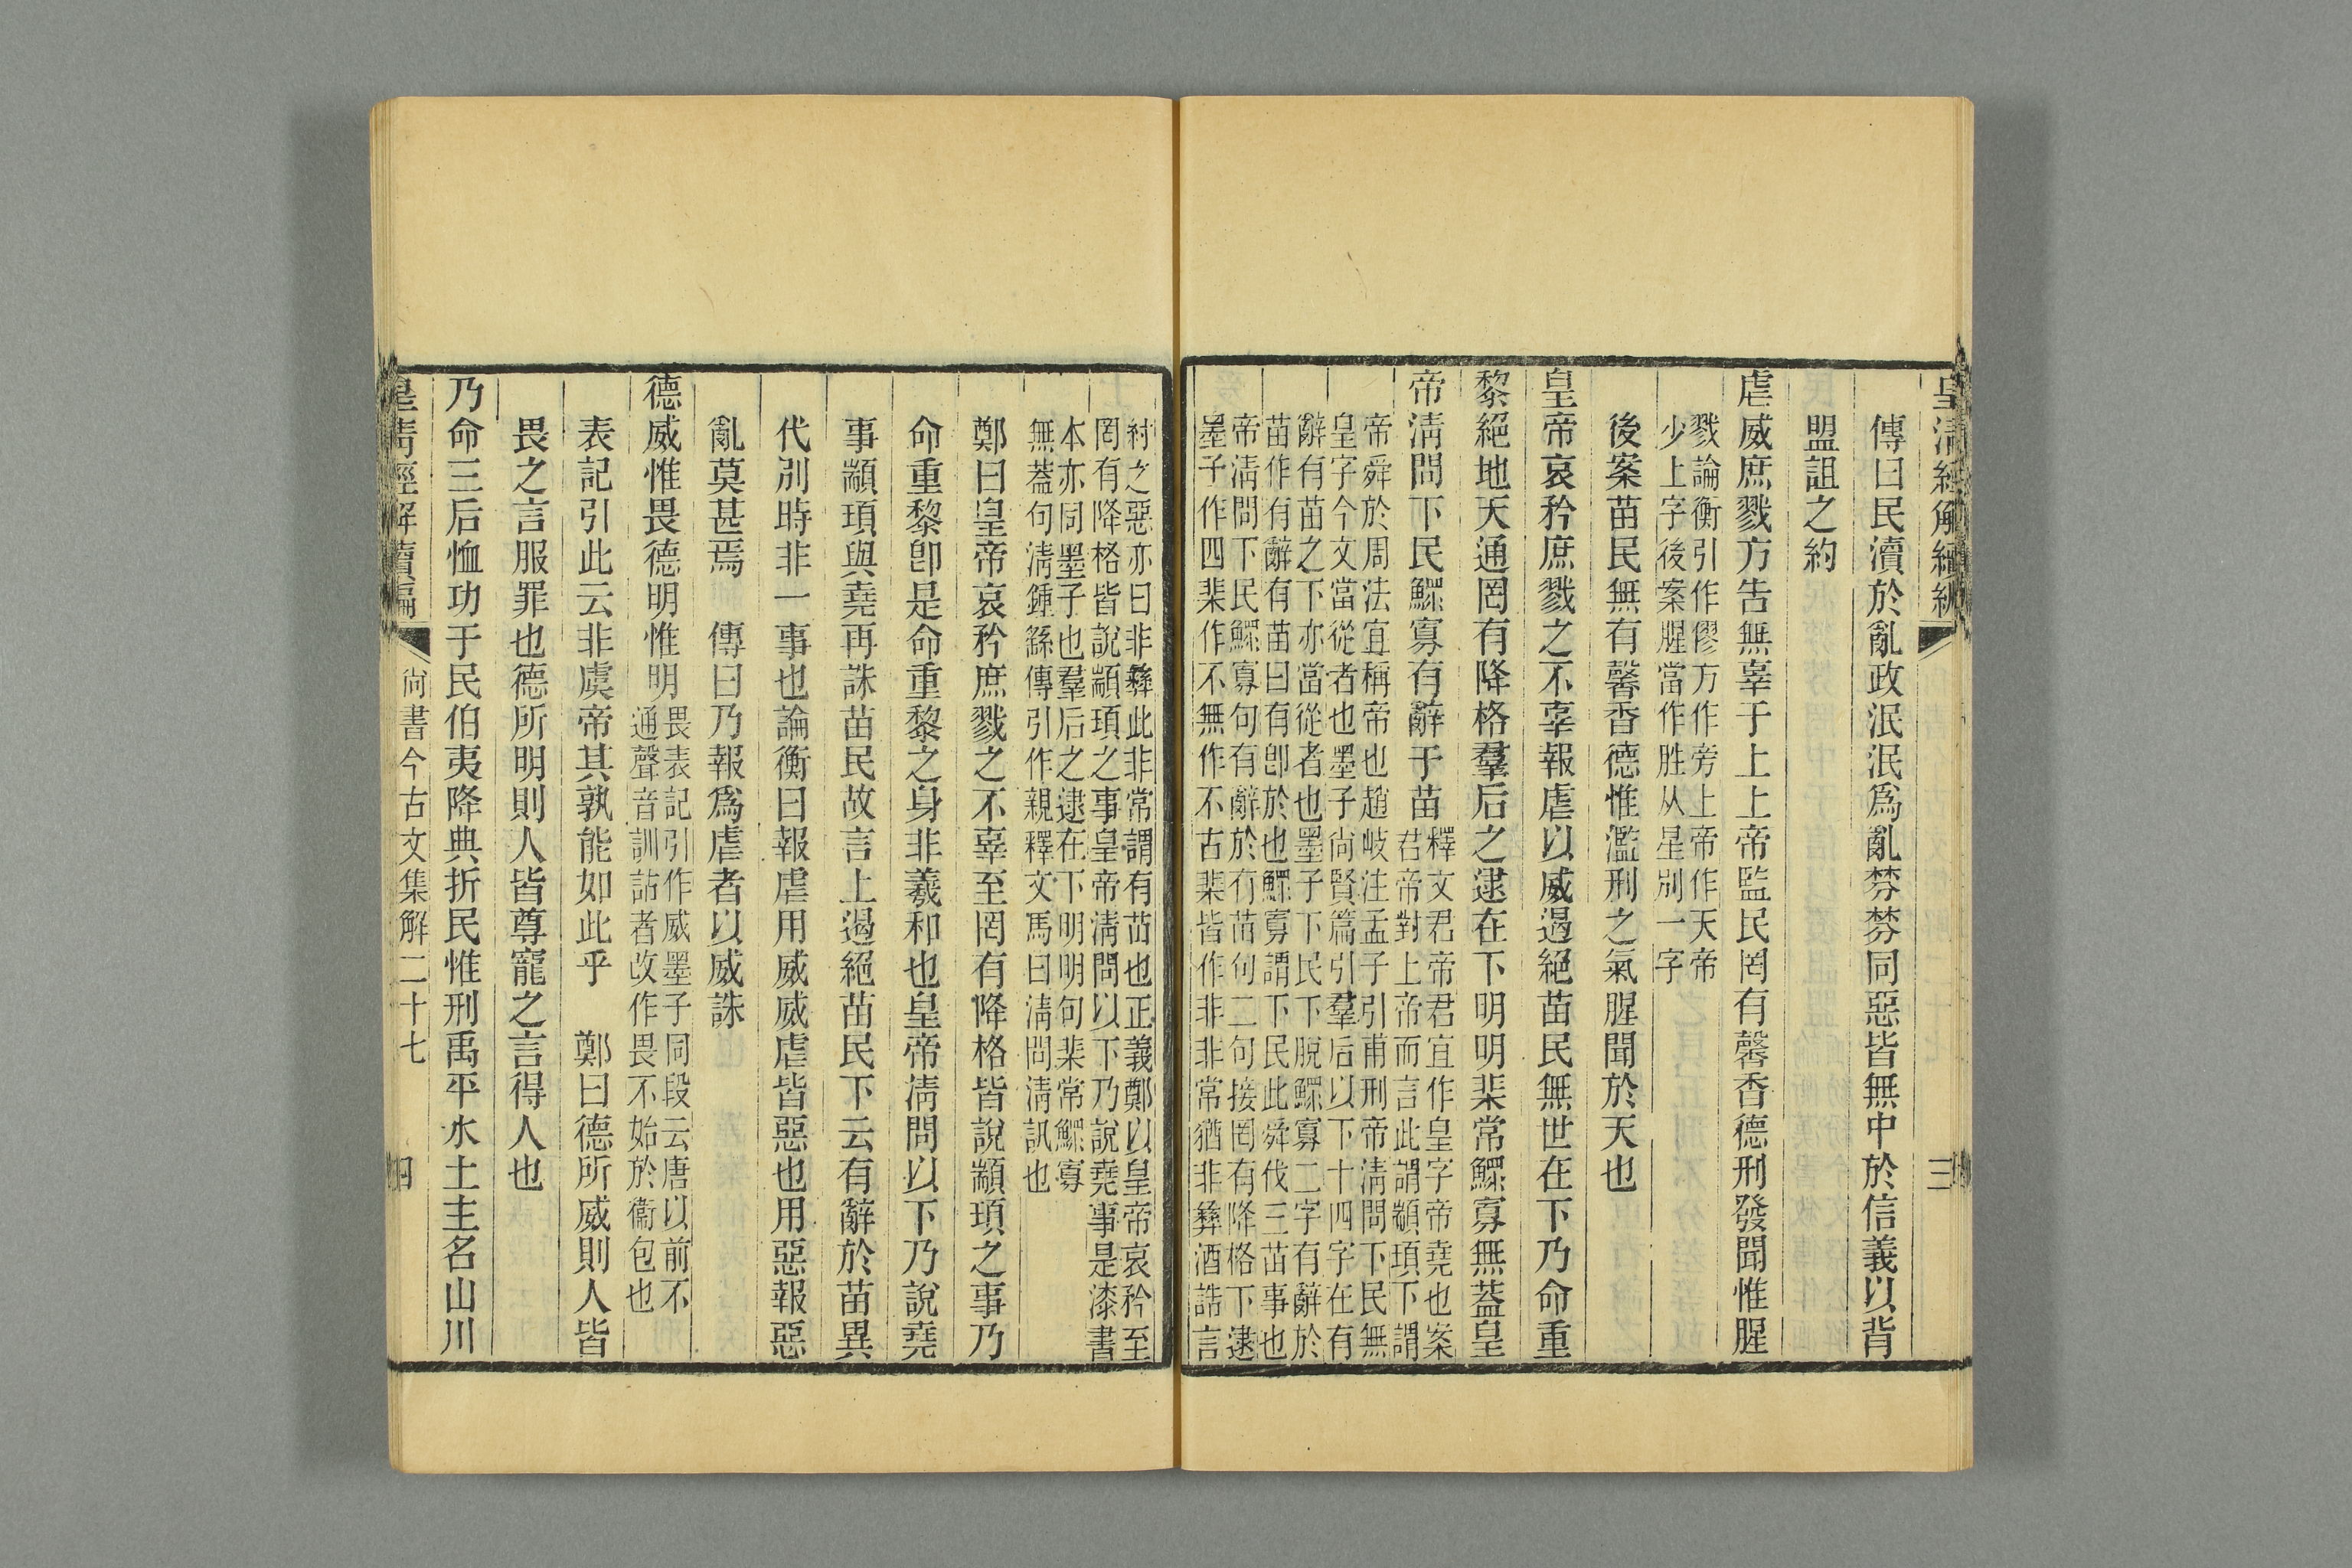 皇清經解續編
三
傳曰民瀆於亂政泯泯爲亂棼棼同惡皆無中於信義以背
盟詛之約
虐威庶戮方告無辜于上上帝監民罔有馨香德刑發聞惟腥
戮論衡引作僇方作旁上帝作天帝
少上字後案腥當作胜从星別一字
後案苗民無有馨香德惟濫刑之氣腥聞於天也
皇帝哀矜庶戮之不辜報虐以威遏絕苗民無世在下乃命重
黎絕地天通罔有降格羣后之逮在下明明棐常鰥寡無蓋皇
帝淸問下民鰥寡有辭于苗
釋文君帝君宜作皇字帝堯也案
君帝對上帝而言此謂顓頊下謂
帝舜於周法宜稱帝也趙岐注孟子引甫刑帝淸問下民無
皇字今文當從者也墨子尚賢篇引羣后以下十四字在有
辭有苗之下亦當從者也墨子下民下脫鰥寡二字有辭於
苗作有辭有苗曰有卽於也鰥寡謂下民此舜伐三苗事也
帝淸問下民鰥寡句有辭於有苗句二句接罔有降格下逮
墨子作四棐作不無作不古棐皆作非非常猶非彝酒誥言
紂之惡亦曰非彝此非常謂有苗也正義鄭以皇帝哀矜至
罔有降格皆說顓頊之事皇帝淸問以下乃說堯事是漆書
本亦同墨子也羣后之逮在下明明句棐常鰥寡
無蓋句淸鍾繇傳引作親釋文馬曰淸問淸訊也
鄭曰皇帝哀矜庶戮之不辜至罔有降格皆說顓頊之事乃
命重黎卽是命重黎之身非羲和也皇帝淸問以下乃說堯
事顓頊與堯再誅苗民故言上遏絕苗民下云有辭於苗異
代別時非一事也論衡曰報虐用威威虐皆惡也用惡報惡
亂莫甚焉　傳曰乃報爲虐者以威誅
德威惟畏德明惟明
畏表記引作威墨子同段云唐以前不
通聲音訓詁者改作畏不始於衞包也
表記引此云非虞帝其孰能如此乎　鄭曰德所威則人皆
畏之言服罪也德所明則人皆尊寵之言得人也
乃命三后恤功于民伯夷降典折民惟刑禹平水土主名山川
皇淸經解續編
尙書今古文集解二十七
四